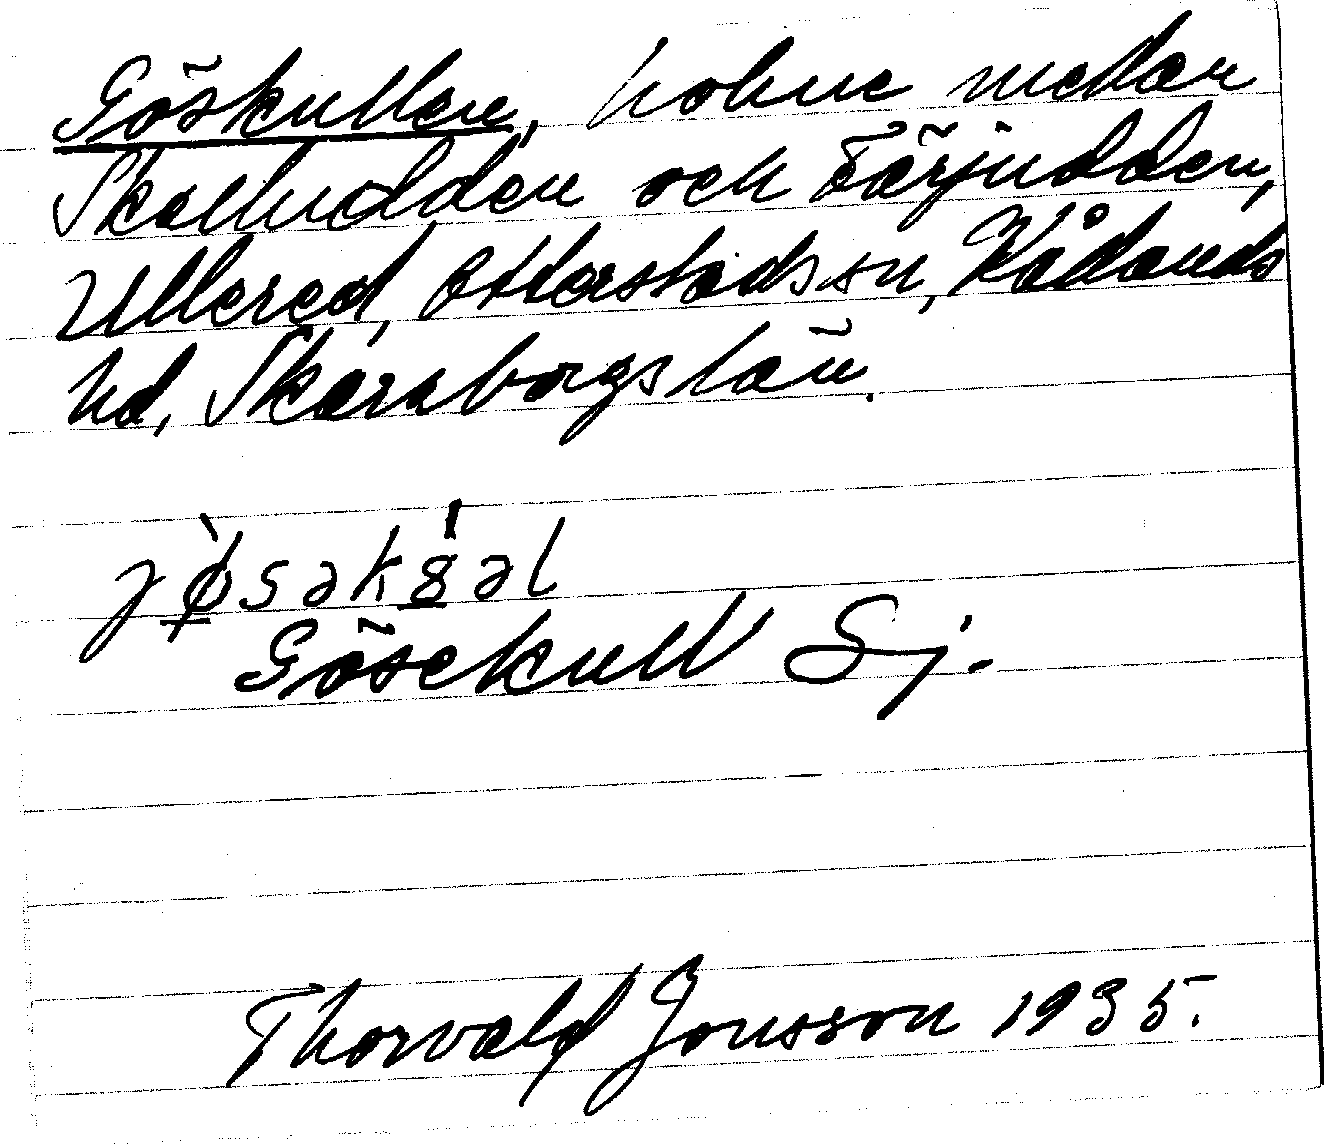 Göskullen, holme mellan
Skalludden och Färjudden,
Ullered, Otterstads sn, Kållands
hd, Skaraborgs län.
Gösekull Sj.
Thorvald Jonsson 1935.